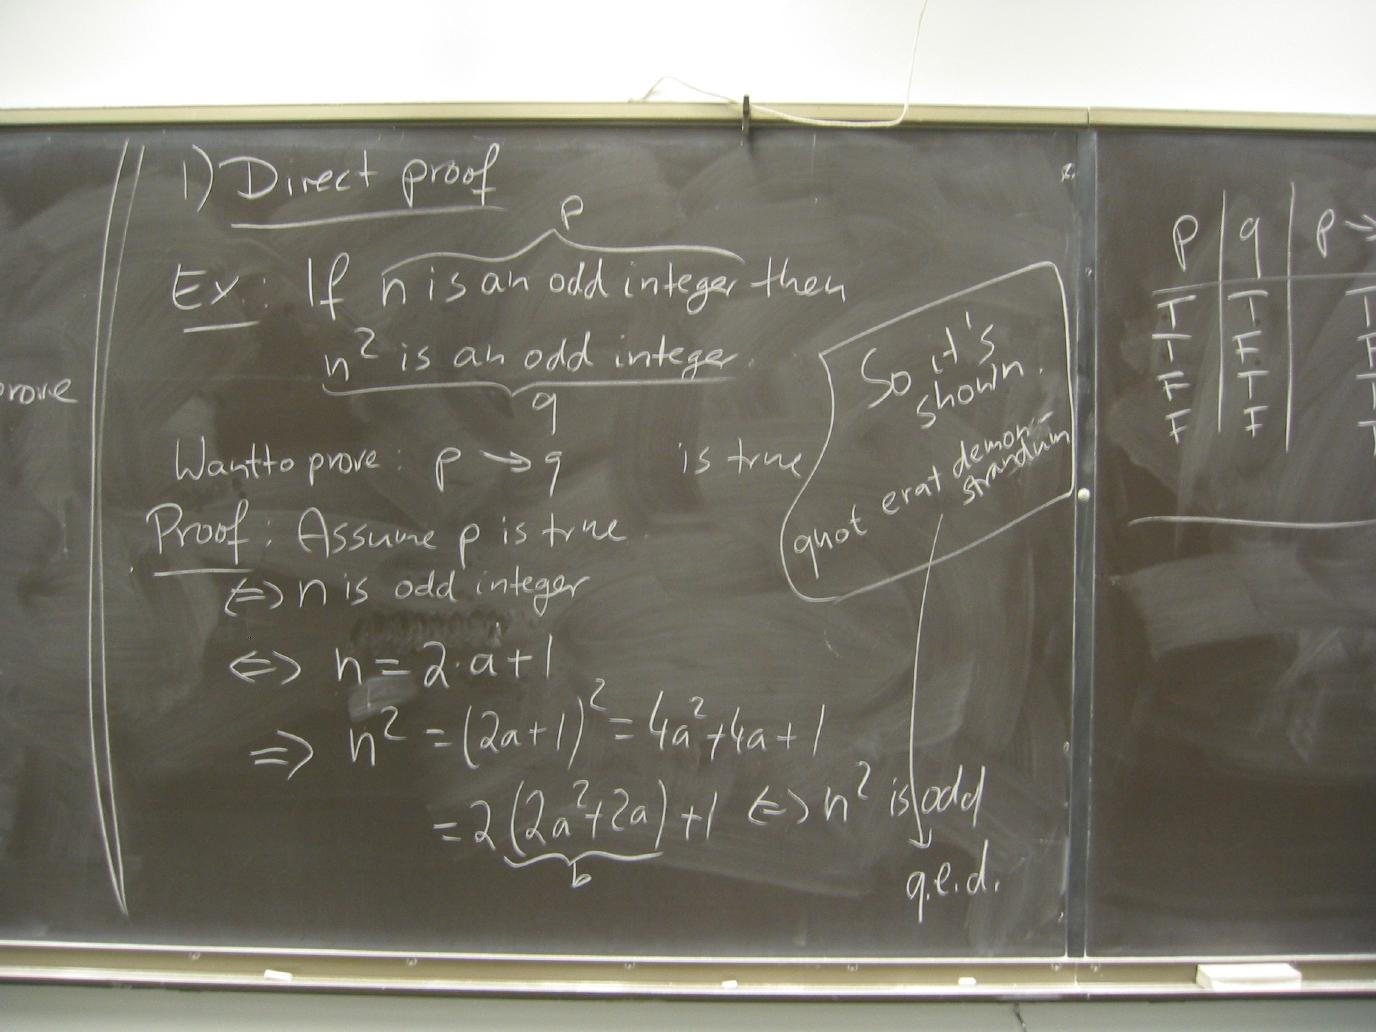 prove
1) Direct proof
p
Ex: If n is an odd integer then
n² is an odd integer.
q
Want to prove: p → q is true
Proof: Assume p is true
⇔ n is odd integer
⇔ n = 2·a+1
⇒ n² = (2a+1)² = 4a²+4a+1
= 2(2a²+2a)+1 ⇔ n² is odd
b
q.e.d.
So it's
shown.
quot erat demon-
strandum
p q p →
T T T
T F F
F T
F F